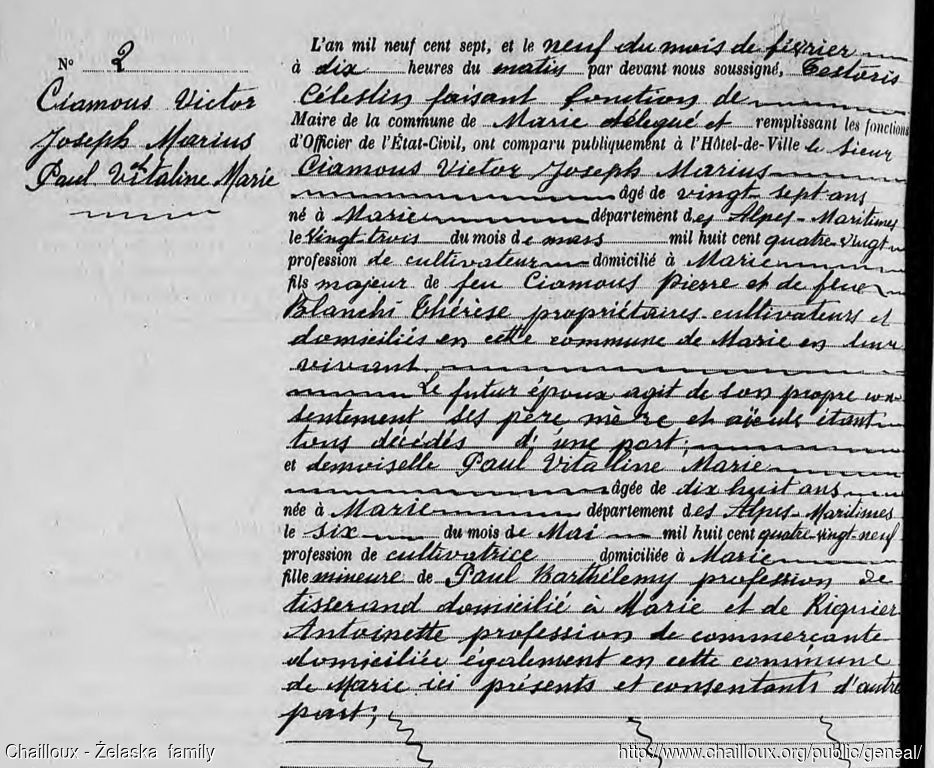 N° 2
Ciamous Victor
Joseph Marius
et
Paul Vitaline Marie
L'an mil neuf cent sept, et le neuf du mois de février
à dix heures du matin par devant nous soussigné, Testoris
Célestin faisant fonctions de
Maire de la commune de Marie délégué et remplissant les fonctions
d'Officier de l'État-Civil, ont comparu publiquement à l'Hôtel-de-Ville le sieur
Ciamous Victor Joseph Marius
âgé de vingt-sept ans
né à Marie département des Alpes-Maritimes
le vingt-trois du mois de mars mil huit cent quatre-vingt
profession de cultivateur domicilié à Marie
fils majeur de feu Ciamous Pierre et de feue
Blanchi Thérèse propriétaires-cultivateurs et
domiciliés en cette commune de Marie en leur
vivant
Le futur époux agit de son propre con-
sentement ses père mère et aïeuls étant
tous décédés d'une part;
et demoiselle Paul Vitaline Marie
âgée de dix huit ans
née à Marie département des Alpes-Maritimes
le six du mois de Mai mil huit cent quatre-vingt-neuf
profession de cultivatrice domiciliée à Marie
fille mineure de Paul Barthélemy profession de
tisserand domicilié à Marie et de Riquier
Antoinette profession de commerçante
domiciliée également en cette commune
de Marie ici présents et consentants d'autre
part;
Chailloux - Żelaska family
http://www.chailloux.org/public/geneal/